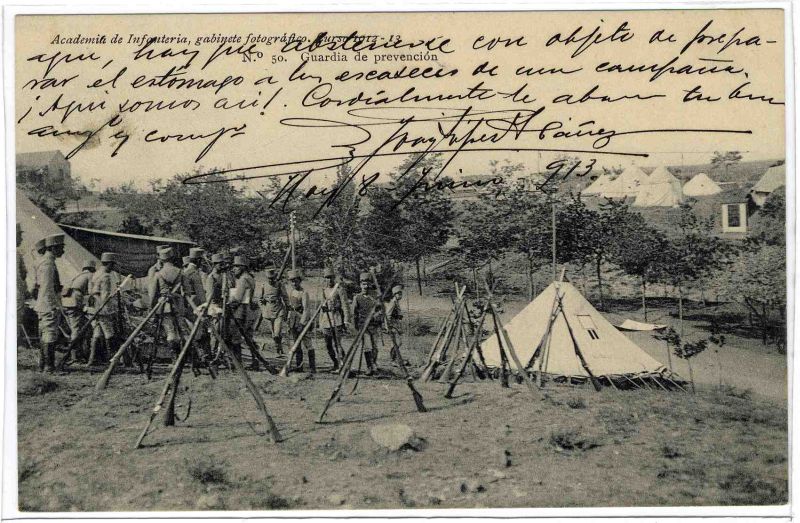 Academia de Infantería, gabinete fotográfico. Curso 1912-13
aquí, hay que abstenerse con objeto de prepa-
N.º 50. Guardia de prevención
rar el estómago a las escaseces de una campaña.
¡Aquí somos así! Cordialmente te abraza tu buen
amgº y comp
Hoy 8 Junio 913.